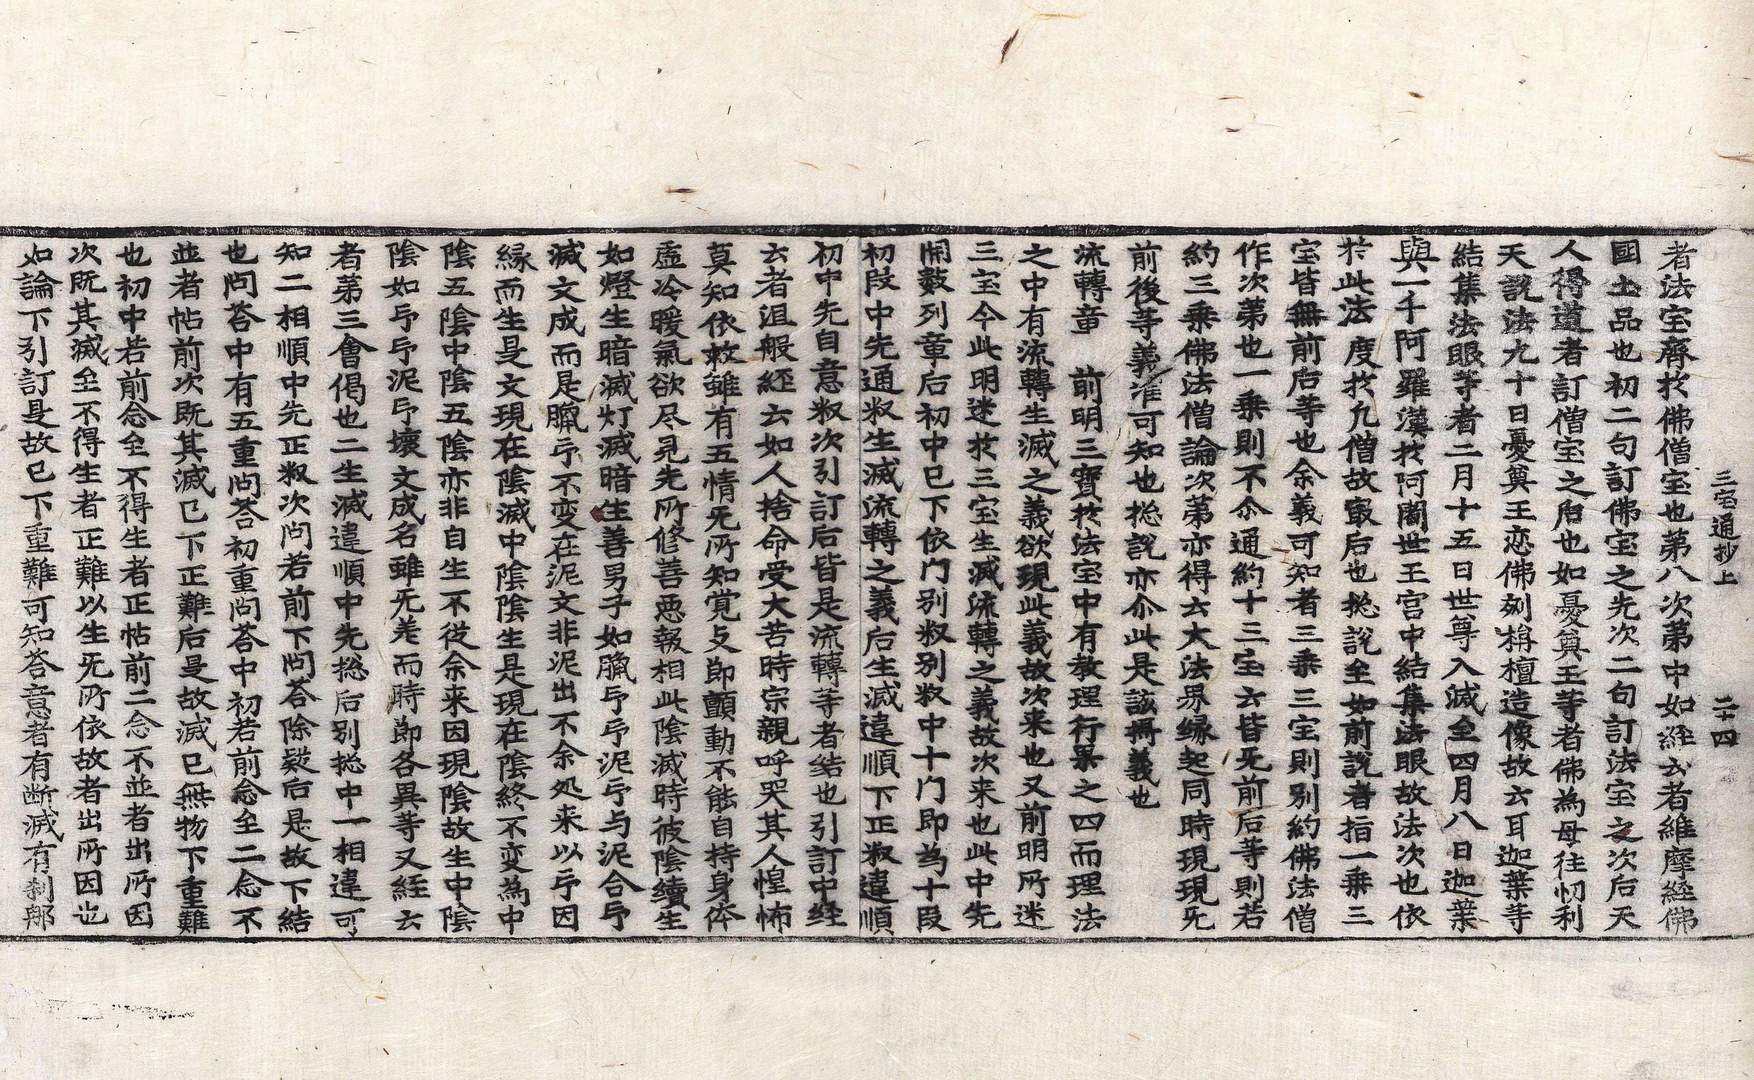 三宝通抄上 二十四
者法宝齊扵佛僧宝也第八次第中如經云者維摩經佛
國土品也初二句訂佛宝之先次二句訂法宝之次后天
人得道者訂僧宝之后也如憂奠王等者佛為母往忉利
天說法九十日憂奠王恋佛刻栴檀造像故云耳迦葉等
結集法眼等者二月十五日世尊入滅至四月八日迦葉
與一千阿羅漢扵阿闍世王宫中結集法眼故法次也依
扵此法度扵凡僧故㝡后也捴說至如前說者指一乗三
宝皆無前后等也余義可知者三乗三宝則別約佛法僧
作次第也一乗則不尒通約十三宝云皆旡前后等則若
約三乗佛法僧論次第亦得云大法界縁起同時現現旡
前後等義准可知也捴說亦尒此是該冊義也
流轉章 前明三寶扵法宝中有教理行果之四而理法
之中有流轉生滅之義欲現此義故次来也又前明所迷
三宝今此明迷扵三宝生滅流轉之義故次来也此中先
開數列章后初中已下依门別叙別叙中十门即為十段
初段中先通叙生滅流轉之義后生滅違順下正叙違順
初中先自意叙次引訂后皆是流轉等者结也引訂中经
云者沮般経云如人捨命受大苦時宗親呼哭其人惶怖
莫知依救雖有五情旡所知覚攴即顫動不能自持身体
虚冷暖氣欲尽見先所修善悪報相此陰滅時彼陰續生
如燈生暗滅灯滅暗生善男子如臈印印泥印与泥合印
滅文成而是臈印不変在泥文非泥出不余処来以印因
縁而生是文現在陰滅中陰陰生是現在陰終不変為中
陰五陰中陰五陰亦非自生不従余来因現陰故生中陰
陰如印印泥印壊文成名雖旡差而時即各異等又経云
者第三會偈也二生滅違順中先捴后別捴中一相違可
知二相順中先正叙次问若前下问荅除疑后是故下結
也问荅中有五重问荅初重问荅中初若前念至二念不
並者帖前次既其滅已下正難后是故滅已無物下重難
也初中若前念至不得生者正帖前二念不並者出所因
次既其滅至不得生者正難以生旡所依故者出所因也
如論下引訂是故已下重難可知荅意者有断滅有刹那